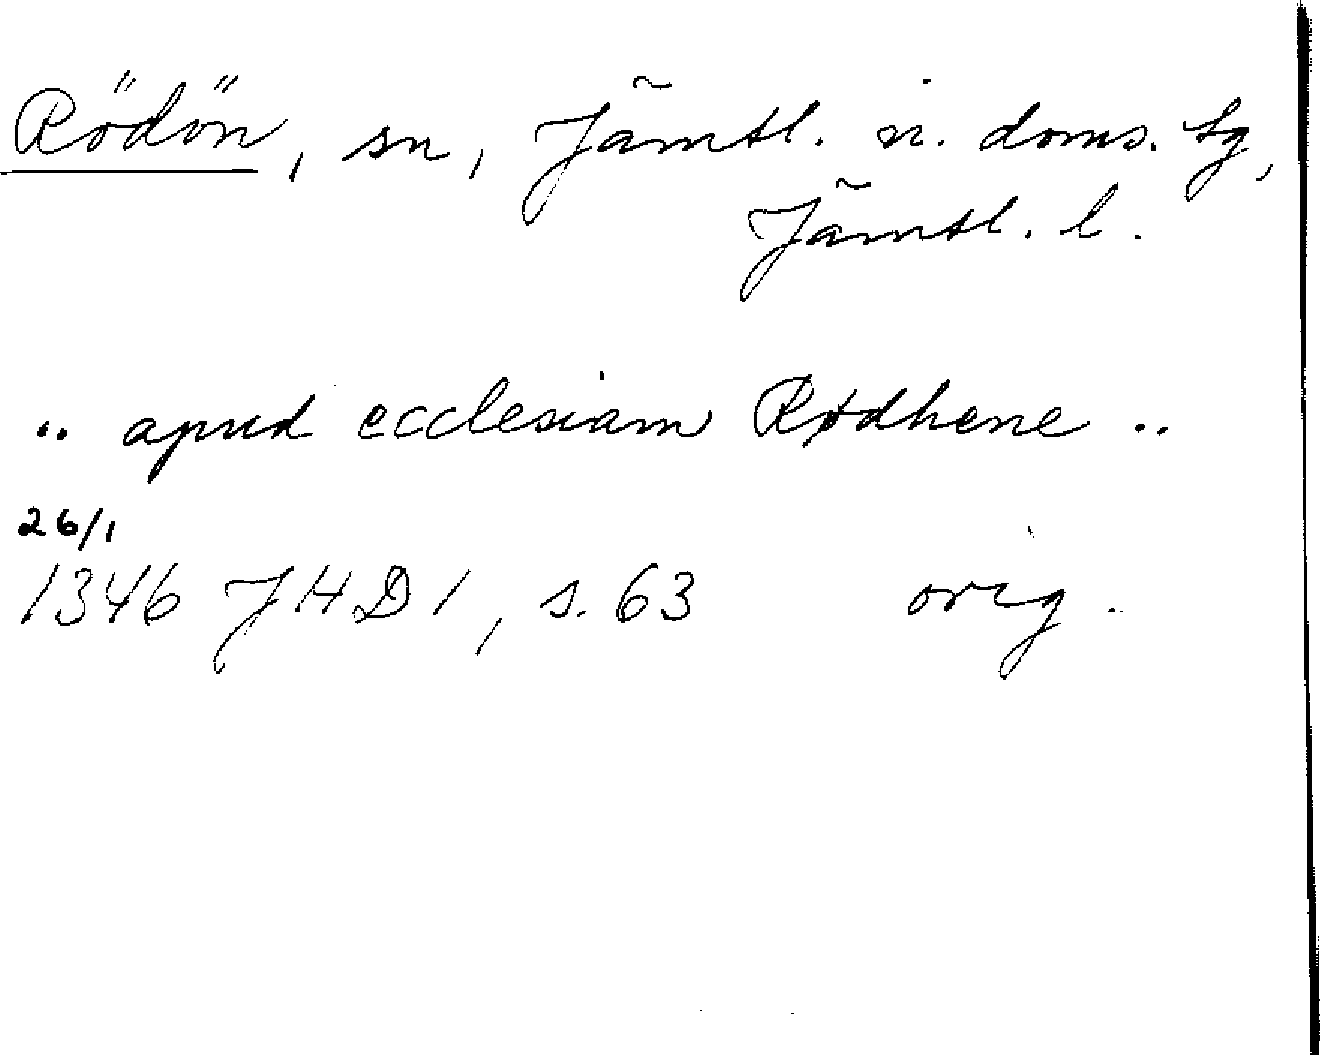 Rödön, sn, Jämtl. n. doms. tg,
Jämtl. l.
.. apud ecclesiam Rødhene ..
26/1
1346 JHD 1, s. 63 orig.